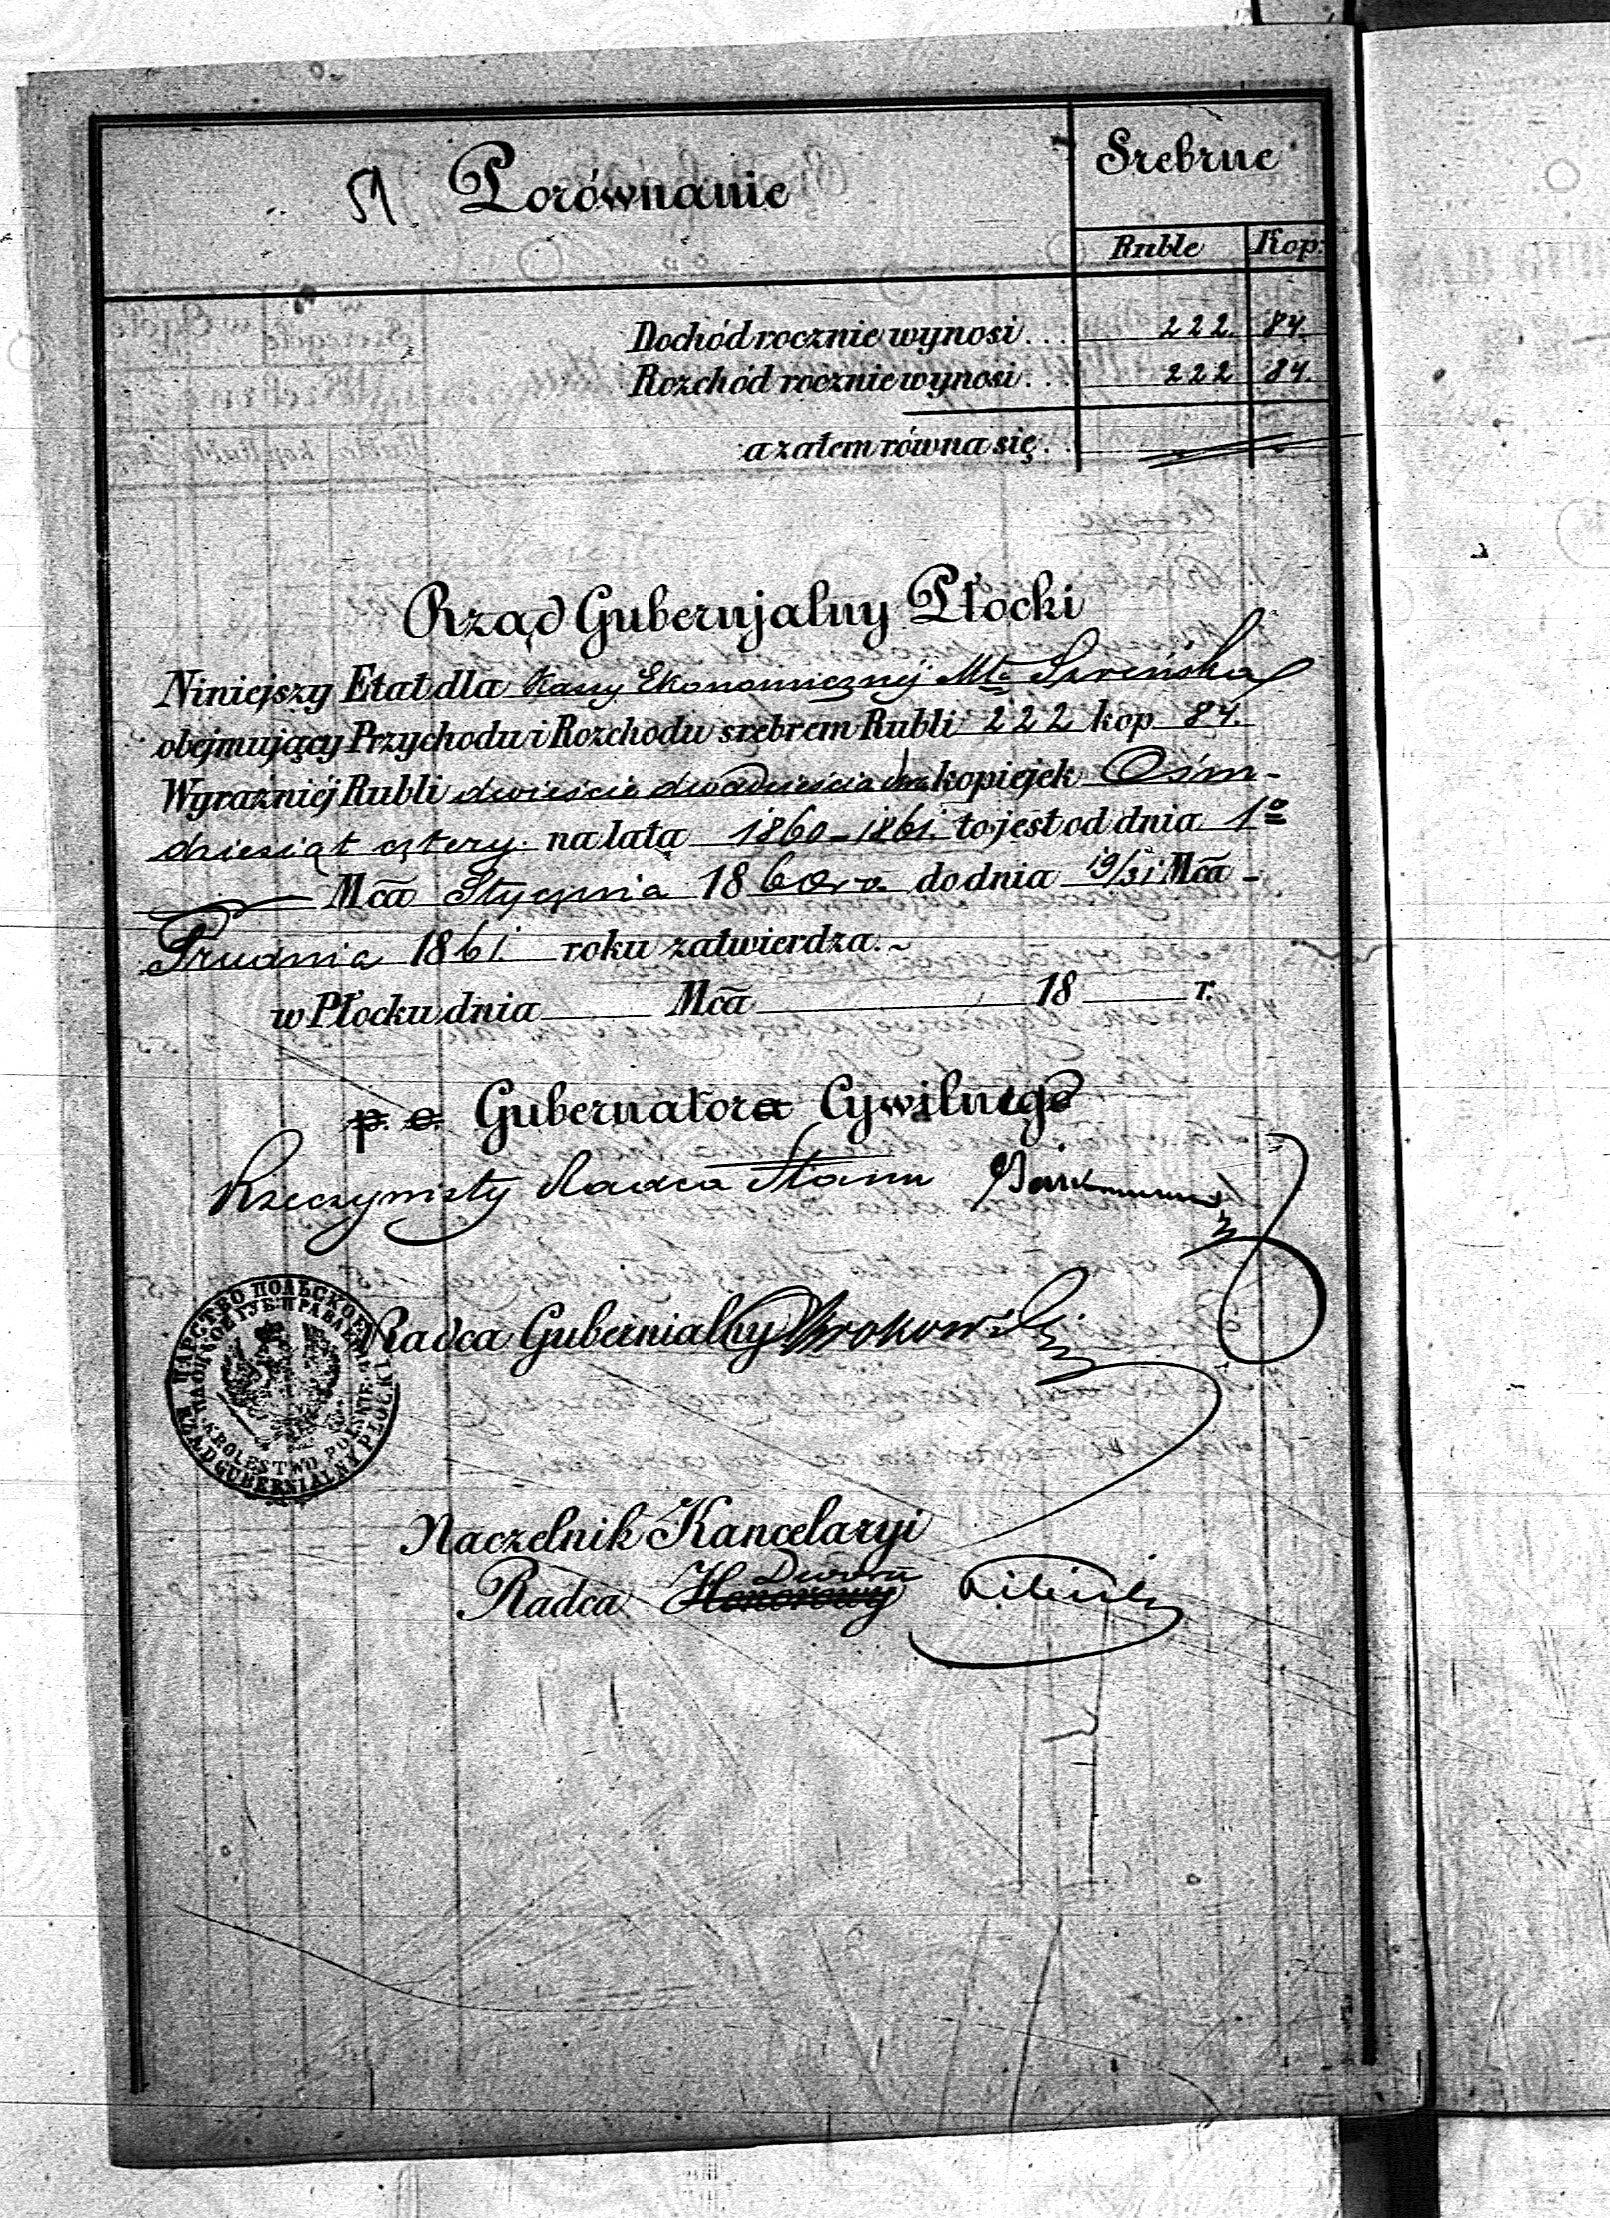 51. Porównanie
Srebrne
Ruble Kop:
Dochód rocznie wynosi... 222. 84.
Rozchód rocznie wynosi... 222 84.
a zatem równa się...
Rząd Gubernjalny Płocki
Niniejszy Etat dla Kassy Ekonomicznéj Mta Szreńska
obejmujący Przychodu i Rozchodu srebrem Rubli 222 kop 84.
Wyrazniéj Rubli dwieście dwadzieścia dwa kopiejek Ośm-
dziesiąt cztery. na lata 1860-1861. to jest od dnia 1o
Mca Stycznia 1860 ro do dnia 19/31 Mca -
Grudnia 1861 roku zatwierdza.~
w Płocku dnia Mca 18 r.
p. o. Gubernatora Cywilnego
Rzeczywisty Radca Stanu
ЦАРСТВО ПОЛЬСКОЕ
KROLESTWO POLSKIE
RZĄD GUBERNIALNY PŁOCKI
Radca Gubernialny
Naczelnik Kancelaryi
Dworu
Radca Honorowy